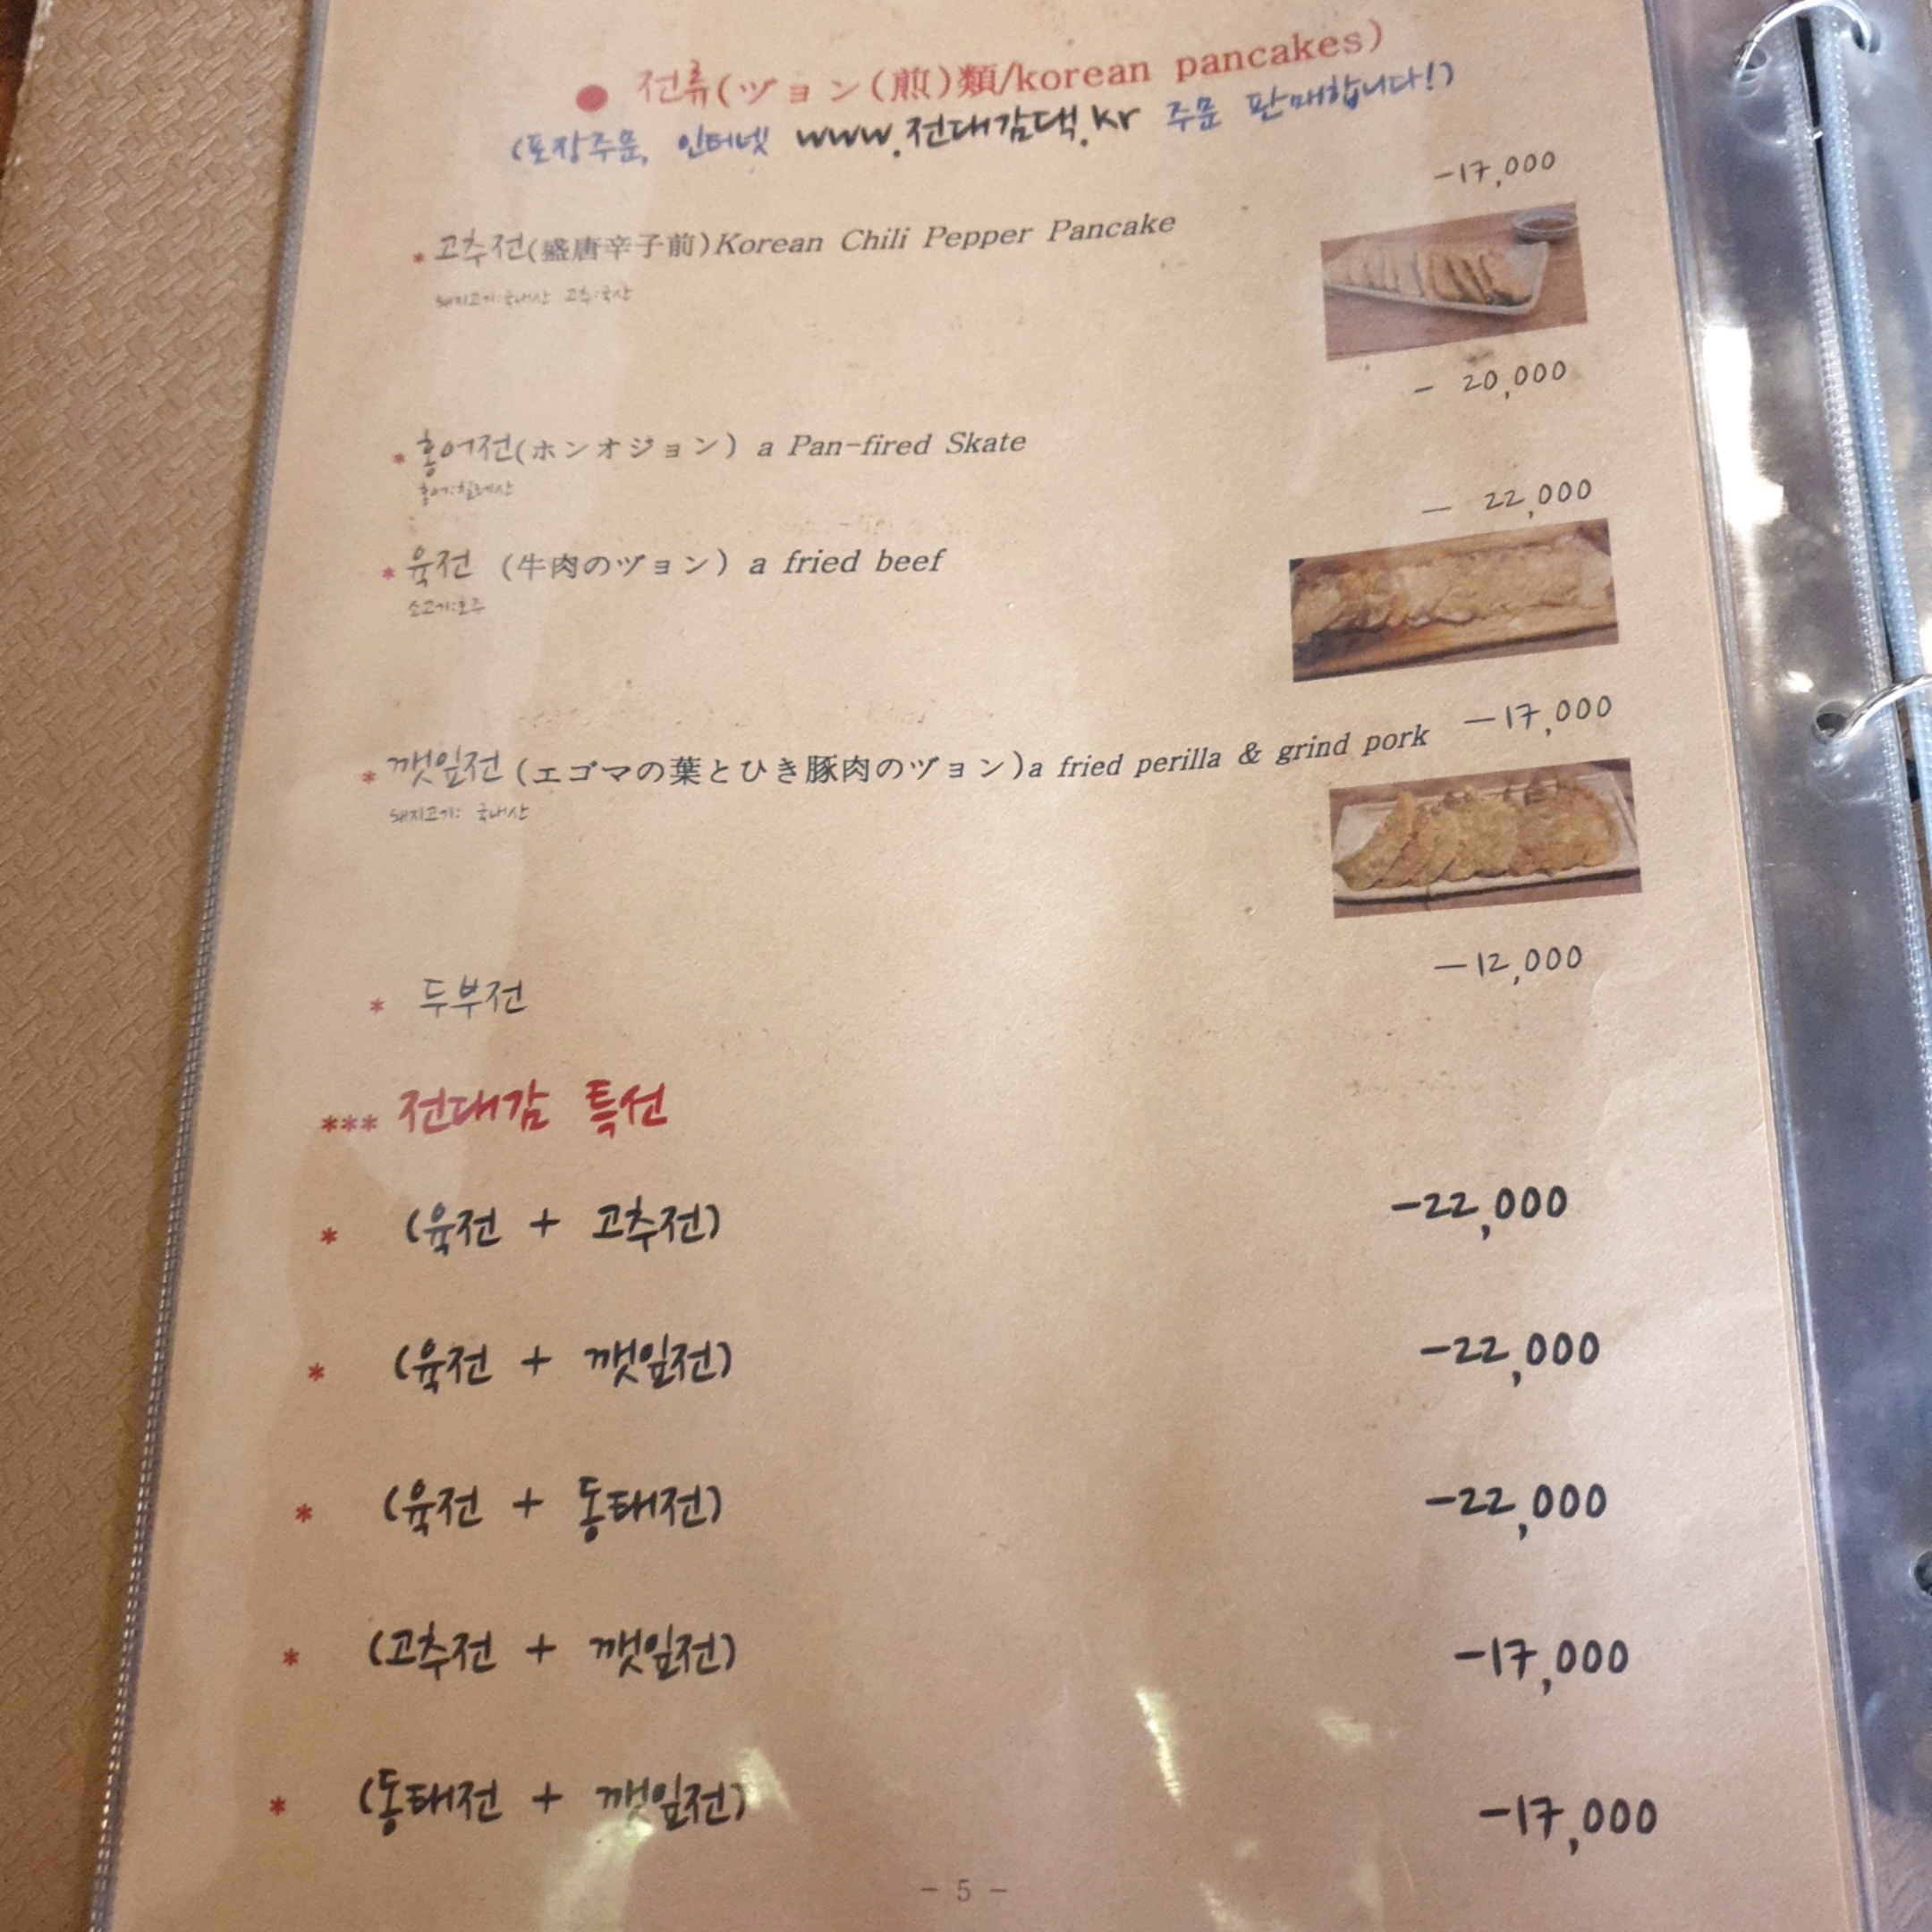 ● 전류(ヅョン(煎)類/korean pancakes)
(포장주문, 인터넷 www.전대감댁.kr 주문 판매합니다!)
-17,000
* 고추전(盛唐辛子前)Korean Chili Pepper Pancake
돼지고기:국내산 고추:국산
- 20,000
* 홍어전(ホンオジョン) a Pan-fired Skate
홍어:칠레산
- 22,000
* 육전 (牛肉のヅョン) a fried beef
소고기:호주
* 깻잎전 (エゴマの葉とひき豚肉のヅョン)a fried perilla & grind pork -17,000
돼지고기: 국내산
-12,000
* 두부전
*** 전대감 특선
* (육전 + 고추전) -22,000
* (육전 + 깻잎전) -22,000
* (육전 + 동태전) -22,000
* (고추전 + 깻잎전) -17,000
* (동태전 + 깻잎전) -17,000
- 5 -